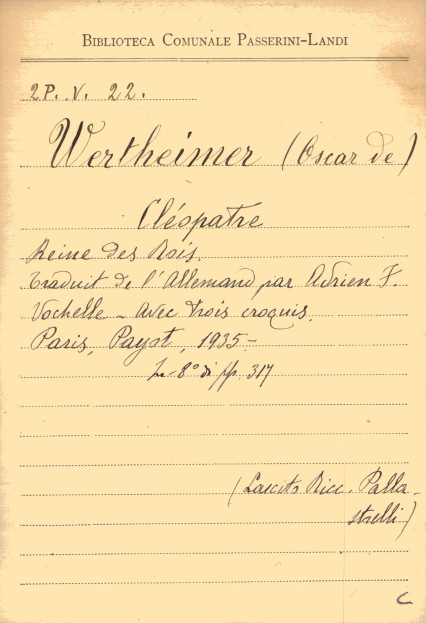 BIBLIOTECA COMUNALE PASSERINI-LANDI
2P. V. 22.
Wertheimer (Oscar de)
Cléopatre
Reine des Rois.
Traduit de l'Allemand par Adrien F.
Vochelle - Avec trois croquis.
Paris, Payot, 1935-
In-8º di pp. 317
(Lascito Ricc. Palla-
strelli)
C